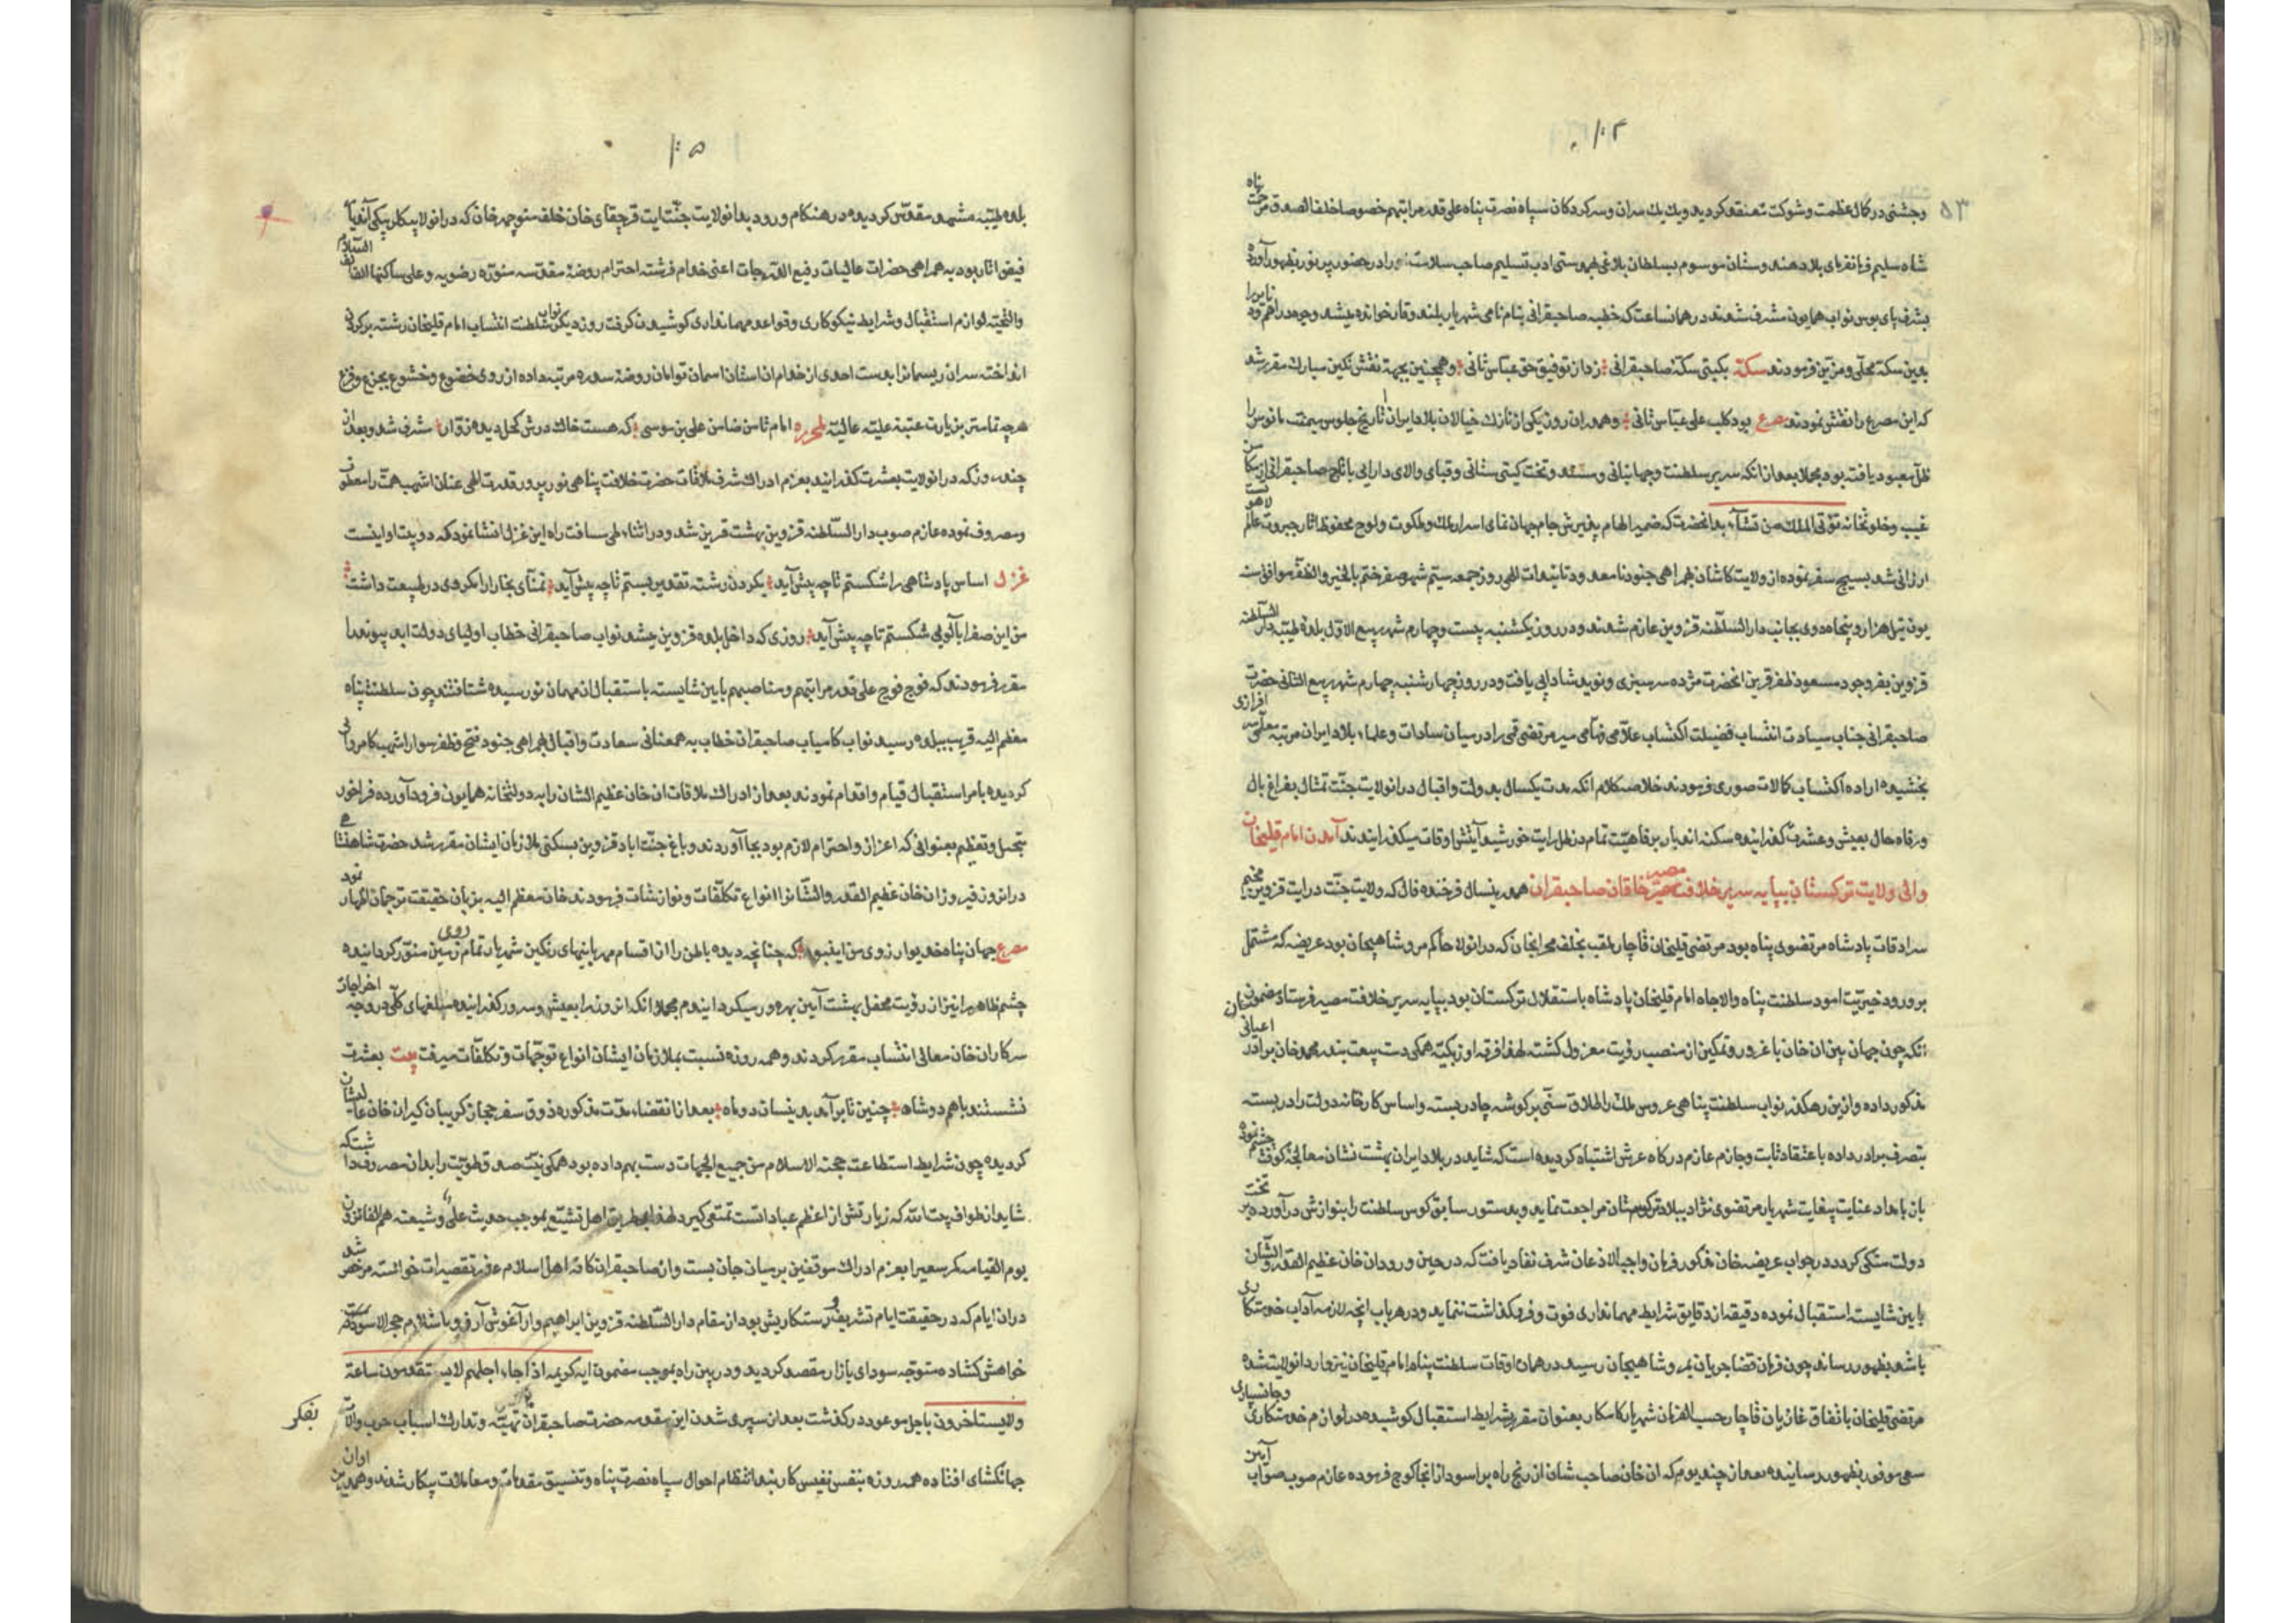 ۱۰۴
۵۳
وجشنی در کمال عظمت و شوکت منعقد کردید و یک یک سران و سرکردکان سپاه نصرت پناه علی قدر مراتبهم خصوصا خلف الصدق مرحمت پناه
شاه سلیم فرمانفرمای بلاد هندوستان موسوم بسلطان بلاغی بدوستی ادب تسلیم صاحب سلامت را در حضور پرنور بظهور آورده
بشرف پای بوس نواب همایون مشرف شدند در همان ساعت که خطبه صاحبقرانی بنام نامی شهریار بلند وقار خوانده میشد وجوه دراهم و دنانیر را
بدین سکه محلی و مزین فرمودند سکه بکیتی سکه صاحبقرانی زد از توفیق حق عباس ثانی و همچنین بجهة نقش نکین مبارک مقرر شد
که این مصرع را نقش نمودند مصرع بود کلب علی عباس ثانی و همدران روز یکی از نازک خیالان بلاد ایران تاریخ جلوس میمنت مانوس را
ظل معبود دریافته بود مجملا بعد از انکه سریر سلطنت و جهانبانی و مسند و تخت کیتی ستانی و قبای والای دارایی با تاج صاحبقرانی از مکامن
غیب و خلوتخانه تؤتی الملک من تشآء بدانحضرت که ضمیر الهام پذیرش جام جهان نمای اسرار ملک و ملکوت و لوح محفوظ اثار جبروت عالم لاهوتست
ارزانی شد بسیج سفر نموده از ولایت کاشان بهمراهی جنود نامعدود تائیدات الهی روز جمعه بیستم شهر صفر ختم بالخیر والظفر موافق سنه
یونت ئیل هزار و پنجاه و دوی بجانب دار السلطنه قزوین عازم شدند و در روز یکشنبه بیست و چهارم شهر ربیع الاول بلده طیبه دار السلطنه
قزوین بفر وجود مسعود ظفر قرین انحضرت مژده سرسبزی و نوید شادابی یافت و در روز چهارشنبه چهارم شهر ربیع الثانی حضرت
صاحبقرانی جناب سیادت انتساب فضیلت اکتساب علامی فهامی میر مرتضی قمی را در میان سادات و علماء بلاد ایران مرتبه معلمی سرافرازی
بخشیده اراده اکتساب کمالات صوری فرمودند خلاصه کلام انکه مدت یکسال بدولت و اقبال در انولایت جنت تمثال بفراغ بال
و رفاه حال بعیش و عشرت کذرانیده سکنه اندیار برفاهیت تمام در ظل رایت خورشید آیتش اوقات میکذرانیدند آمدن امام قلیخان
والی ولایت ترکستان بپایه سریر خلافت مصیر خاقان صاحبقران همدرینسال فرخنده فال که ولایت جنت درایت قزوین مخیم
سرادقات پادشاه مرتضوی پناه بود مرتضی قلیخان قاجار ملقب بخلف محرابخان که در انولا حاکم مرو شاهیجان بود عریضه که مشتمل
بر ورود خیریت امود سلطنت پناه والاجاه امام قلیخان پادشاه باستقلال ترکستان بود بپایه سریر خلافت مصیر فرستاد مضمونش ان
انکه چون جهان بین ان خان با غرور و تمکین از منصب رؤیت معزول کشته لهذا فرقه اوزبکیه همکی دست بیعت بندر محمد خان برادر اعیانی
مذکور داده و ازین رهکذر نواب سلطنت پناهی عروس ملک را طلاق سنی بر کوشه چادر بسته و اساس کارخانه دولت را در بسته
بتصرف برادر داده با عتقاد ثابت و جازم عازم درکاه عرش اشتباه کردیده است که شاید در بلاد ایران بهشت نشان معالجه کوفت چشم نموده
بان بامداد عنایت بیغایت شهریار مرتضوی نژاد ببلاد ترکستان مراجعت نماید و بدستور سابق کوس سلطنت را بنوازش درآورده بر تخت
دولت متکی کردد در جواب عریضه خان مذکور فرمان واجب الاذعان شرف نفاد یافت که در حین ورود ان خان عظیم القدر و الشان
بایین شایسته استقبال نموده دقیقه از دقایق شرایط مهمانداری فوت و فروکذاشت ننماید و در هر باب انچه لازمه آداب خدمتکاری
باشد بظهور رساند چون فرمان قضا جریان بمرو شاهیجان رسید در همان اوقات سلطنت پناه امام قلیخان نیز وارد انولایت شده
مرتضی قلیخان باتفاق غازیان قاجار حسب الفرمان شهریار کامکار بعنوان مقرر شرایط استقبال کوشیده در لوازم خدمتکاری و جانسپاری
سعی موفور بظهور رسانیده بعد از چند یوم که ان خان صاحب شان از رنج راه براسود از انجا کوچ فرموده عازم صوب صواب آیین
۱۰۵
بلده طیبه مشهد مقدس کردیده در هنکام ورود بدانولایت جنت ایت قرچقای خان خلف منوچهر خان که در انولا بیکلربیکی آندیار
فیض اثار بود به همراهی حضرات عالیات رفیع الدرجات اعنی خدام فرشته احترام روضه مقدسه منوره رضویه و علی ساکنها الف السلام
والتحیته لوازم استقبال و شرایط نیکوکاری و قواعد مهمانداری کوشیدن کرفت روز دیکر نواب سلطنت انتساب امام قلیخان رشته بر کردن
انداخته سر ان ریسمانرا بدست احدی از خدام ان استان اسمان توامان روضه سدره مرتبه داده از روی خضوع و خشوع بجزع و فزع
هرچه تمامتر بزیارت عتبه علیه عالیه امام ثامن ضامن علی بن موسی که هست خاک درش کحل دیده زوار مشرف شد و بعد ان
چند روزکه در انولایت بعشرت کذرانید بعزم ادراک شرف ملاقات حضرت خلافت پناهی نور پرور قدرت الهی عنان اشهب همت را معطوف
و مصروف نموده عازم صوب دار السلطنه قزوین بهشت قرین شد و در اثناء طی مسافت راه این غزل انشا نمود که دو بیت او اینست
غزل اساس پادشاهی را شکستم تا چه پیش آید بکردن رشته تقدیر بستم تا چه پیش آید تمنای بخارا رابکردی در طبیعت داشت
من این صفرا بآلویی شکستم تا چه پیش آید روزی که داخل بلده قزوین میشد نواب صاحبقرانی خطاب اولیای دولت ابد پیوند را
مقرر فرمودند که فوج فوج علی قدر مراتبهم و مناصبهم بایین شایسته باستقبال ان مهمان نو رسیده شتافتند چون سلطنت پناه
معظم الیه قریب ببلده رسید نواب کامیاب صاحبقران خطاب به همعنانی سعادت و اقبال بهمراهی جنود فتح و ظفر سوار اشهب کامرانی
کردیده بامر استقبال قیام و اقدام نمودند بعد از ادراک ملاقات ان خان عظیم الشان را به دولتخانه همایون فرود آورده فراخور
تبجیل و تعظیم بعنوانی که اعزاز و احترام لازم بود بجا آوردند و باغ جنت اباد قزوین بسکنی ملازمان ایشان مقرر شد حضرت شاهنشاهی
در انروز فیروز ان خان عظیم القدر والشانرا انواع تکلفات و نوازشات فرمودند خان معظم الیه بزبان حقیقت ترجمان اظهار نمود
مصرع جهان پناه خدیوا رزوی من این بود که چنانچه دیده باطن را ان اقسام مهربانیهای رنکین شهریار تمام روی زمین منور کردانیده
چشم ظاهر را نیز از رؤیت محفل بهشت آیین بهره ور میکردانیدم مجملا انکه انروز را بعیش و سرور کذرانیده مبلغهای کلی در وجه اخراجات
سرکار ان خان معالی انتساب مقرر کردند و همه روزه نسبت بملازمان ایشان انواع توجهات و تکلفات میرفت بیت بعشرت
نشستند باهم دو شاه چنین تا برآمد بدینسان دو ماه بعد از انقضاء مدت مذکوره ذوق سفر حجاز کریبان کیر ان خان عالیشان
کردیده چون شرایط استطاعت حجة الاسلام من جمیع الجهات دست بهم داده بود همکی نیت صدق طویت را بدان مصروف داشت که
شاید از طواف بیت الله که زیارتش از اعظم عبادات است تمتعی کیرد لهذا بطریق اهل تشیع بموجب حدیث علی و شیعته هم الفائزون
یوم القیامه کمر سعی را بعزم ادراک موقفین بر میان جان بست و ان صاحبقران کافه اهل اسلام عذر تقصیرات خواسته مرخص شد
دران ایام که در حقیقت ایام تشریق و رستکاریش بود از مقام دار السلطنه قزوین ابراهیم وار آغوش آرزو باستلام حجر الاسود
خواهش کشاده متوجه سودای بازار مقصد کردید و در بین راه بموجب مضمون ایه کریمه اذا جاء اجلهم لا یستقدمون ساعة
ولا یستاخرون باجل موعود درکذشت بعد از سپری شدن این مقدمه حضرت صاحبقران تهیه و تدارک اسباب حرب و آلات
بفکر
جهانکشای افتاده همه روزه بنفس نفیس کاربند انتظام احوال سپاه نصرت پناه و تنسیق مقدمات و معاملات پیکار شدند و همدرین اوان